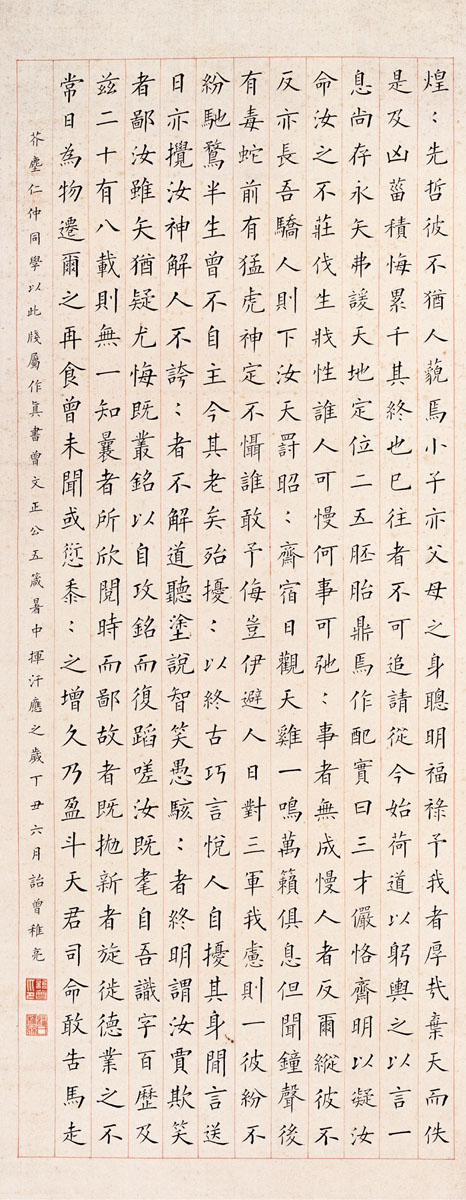 煌:先哲彼不猶人藐焉小子亦父母之身聰明福祿予我者厚哉棄天而佚
是及凶菑積悔累千其終也已往者不可追請從今始荷道以躬輿之以言一
息尚存永矢弗諼天地定位二五胚胎鼎焉作配實曰三才儼恪齊明以凝汝
命汝之不莊伐生戕性誰人可慢何事可弛:事者無成慢人者反爾縱彼不
反亦長吾驕人則下汝天罰昭:齋宿日觀天雞一鳴萬籟俱息但聞鐘聲後
有毒蛇前有猛虎神定不懾誰敢予侮豈伊避人日對三軍我慮則一彼紛不
紛馳騖半生曾不自主今其老矣殆擾:以終古巧言悅人自擾其身閒言送
日亦攪汝神解人不誇:者不解道聽塗說智笑愚駭:者終明謂汝賈欺笑
者鄙汝雖矢猶疑尤悔既叢銘以自攻銘而復蹈嗟汝既耄自吾識字百歷及
茲二十有八載則無一知曩者所欣閱時而鄙故者既拋新者旋徙德業之不
常日為物遷爾之再食曾未聞或愆黍:之增久乃盈斗天君司命敢告馬走
芥塵仁仲同學以此牋屬作真書曾文正公五箴暑中揮汗應之歲丁丑六月詒曾稚亮